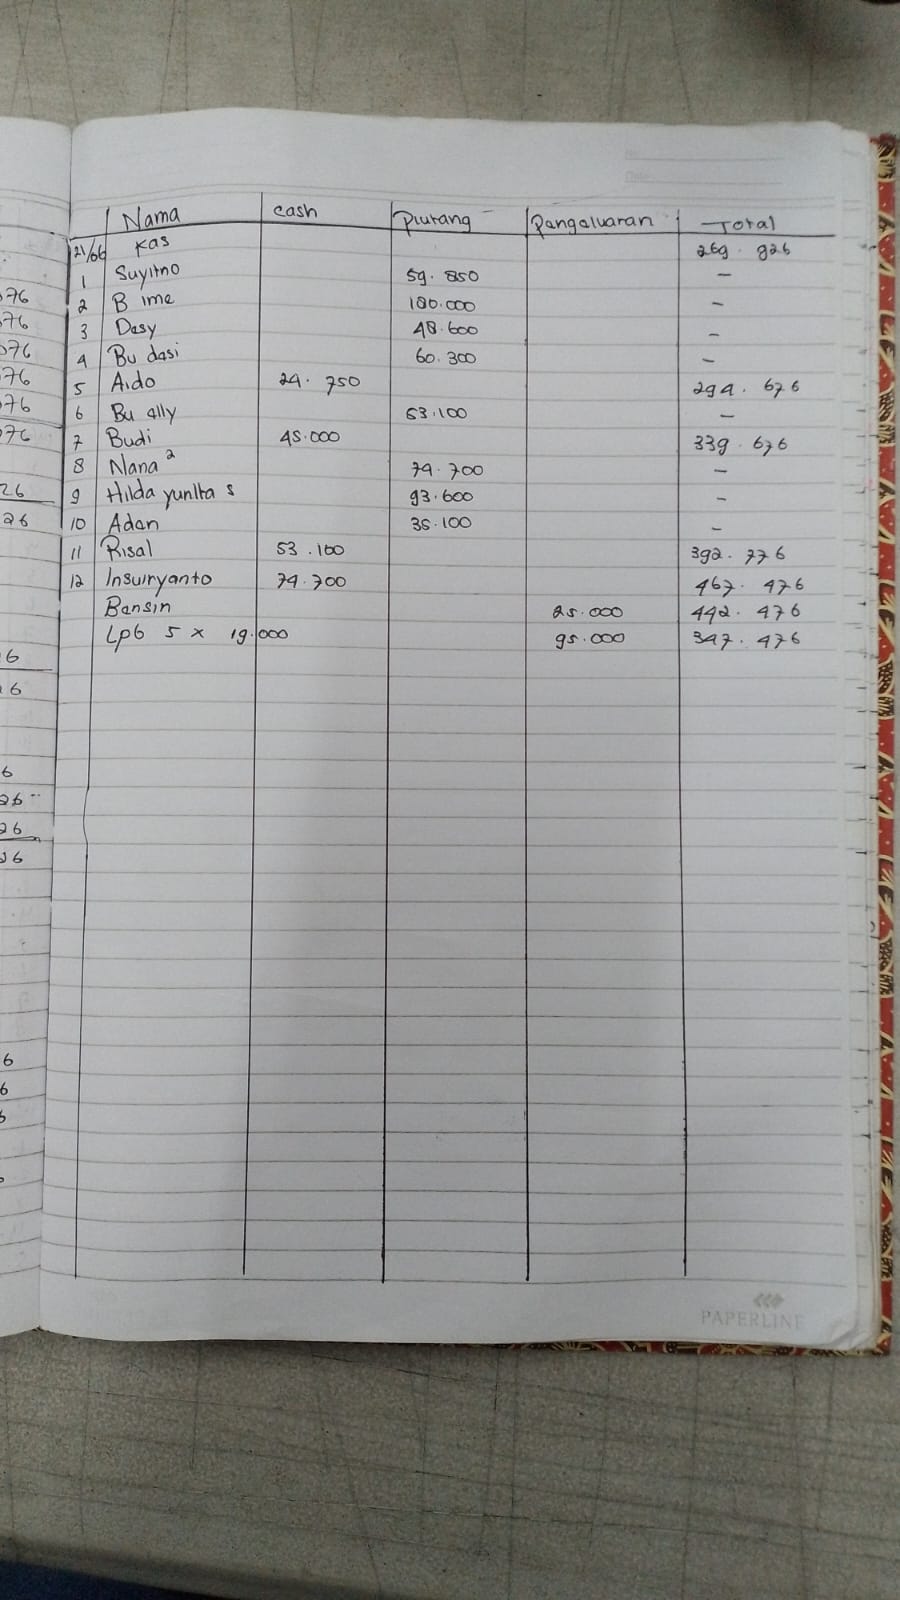 Nama cash piutang pengeluaran Total
21/06 Kas 269.926
1 Suyitno 59.850 -
2 B ime 180.000 -
3 Desy 48.600 -
4 Bu desi 60.300 -
5 Aldo 24.750 294.676
6 Bu ally 53.100 -
7 Budi 45.000 339.676
8 Nana² 74.700 -
9 Hilda yunita s 93.600 -
10 Adan 35.100 -
11 Risal 53.100 392.776
12 Insuryanto 74.700 467.476
Bensin 25.000 442.476
LPG 5 x 19.000 95.000 347.476
PAPERLINE
076
076
076
076
076
076
26
26
6
6
6
26
26
26
6
6
6